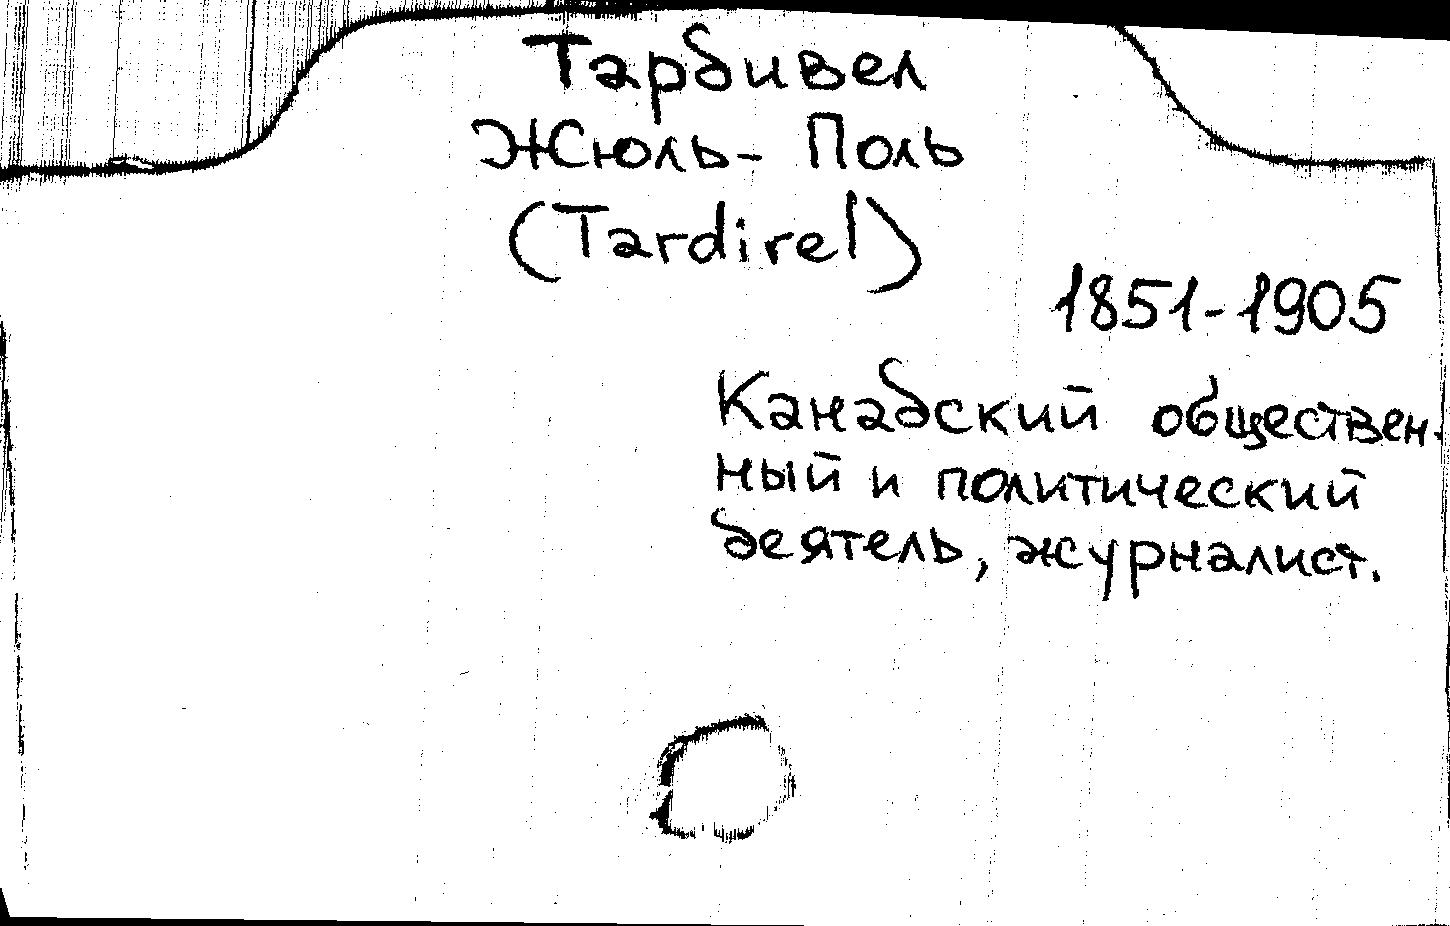 Тардивел
Жюль- Поль
(Tardirel)
1851-1905
Канадский обществен-
ный и политический
деятель, журналист.